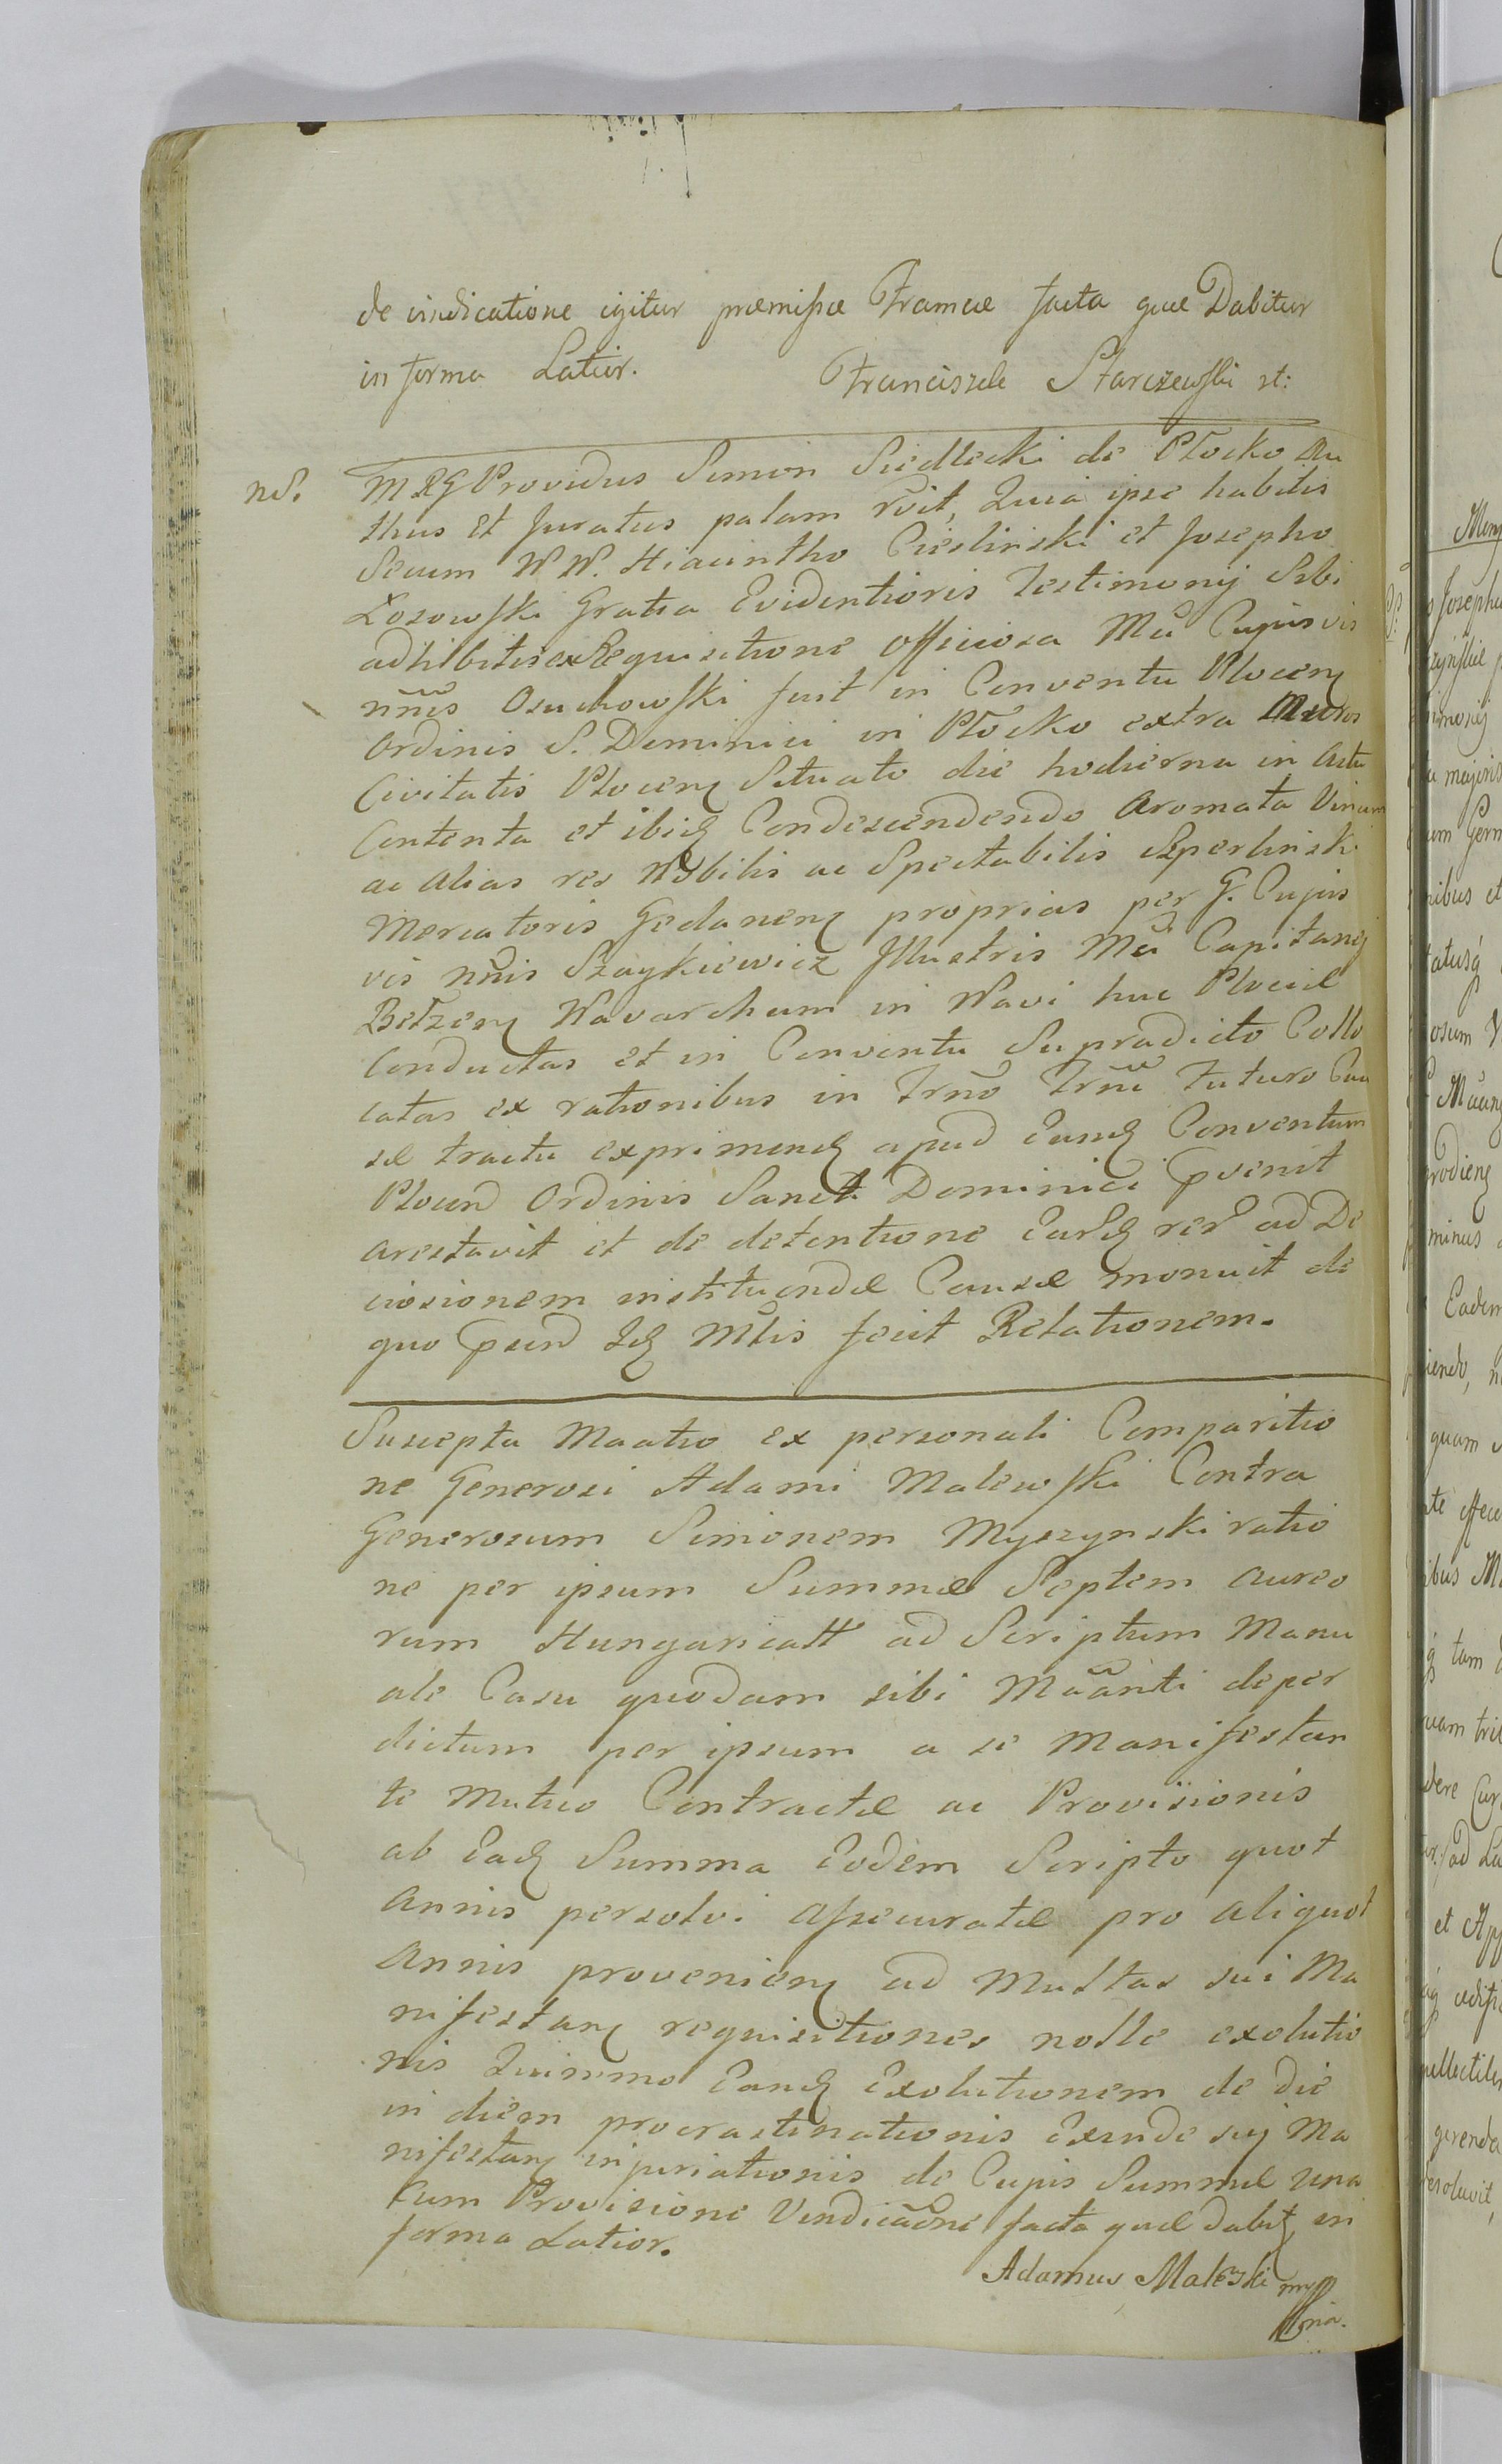 de vindicatione igitur præmissæ Frameæ facta quæ Dabitur
in forma Latior. Franciszek Starczewski st:
nd. MRG Providus Simon Siedlecki de Płocko Au
thus et Juratus palam rdit, Quia ipse habitis
Secum WW. Hiacintho Cieslinski et Josepho
Łosowski Gratia Evidentioris Testimonij Sibi
adhibitis ex Requisitione officiosa Mci Cujusvis
nnis Osuchowski fuit in Conventu Plocen
Ordinis S. Dominici in Płocko extra Muros
Civitatis Plocen Situato die hodierna in Actu
Contenta et ibid Condescendendo Aromata Vinum
ac Alias res Nobilis ac Spectabilis Szperlinski
Mercatoris Gedanen proprias per G. Cujus
vis nnis Szaykiewicz Jllustris Mci Capitanej
Bełzen Navarchum in Navi huc Plociæ
Conductas et in Conventu Supradicto Collo
catas ex rationibus in Trno Trnii futuro Cau
sæ tractu exprimend apud Eund Conventum
Plocen Ordinis Sancti Dominici pvenit
arestavit et de detentione Eard rer ad De
cisionem instituendæ Causæ monuit de
quo psens Id Mtlis fecit Relationem.
Suscepta Maatio ex personali Comparitio
ne Generosi Adami Malewski Contra
Generosum Simonem Myszynski ratio
ne per ipsum Summæ Septem Aureo
rum Hungaricatt ad Scriptum Manu
ale Casu quodam sibi Mäanti deper
ditum per ipsum a se Manifestan
te Mutuo Contractæ ac Provisionis
ab Ead Summa Eodem Scripto quot
Annis persolvi Assecuratæ pro aliquot
Annis provenien ad Multas sui Ma
nifestan requisitiones nolle exolutio
nis Quinimo Eand Exolutionem de die
in diem procrastinationis Exinde suj Ma
nifestan injuriationis de Cujus Summæ una
Cum Provisione Vindicaõne facta quæ dabit in
forma Latior.
Adamus Maleski mpp